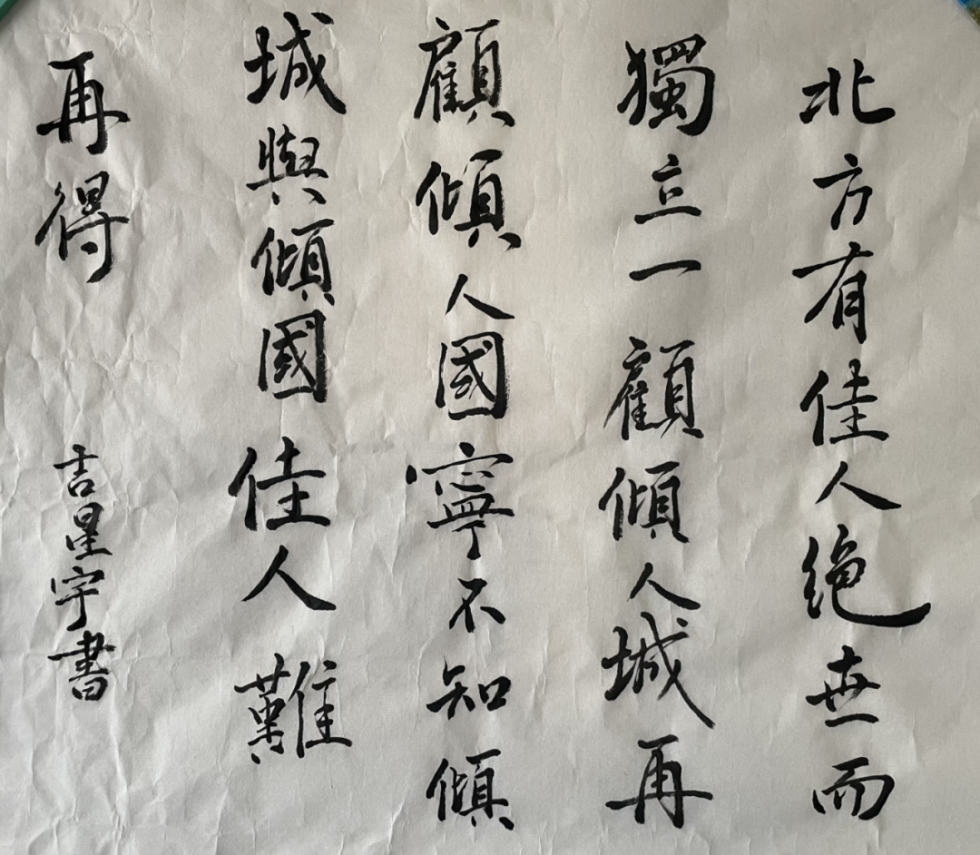 北方有佳人絕世而
獨立一顧傾人城再
顧傾人國寧不知傾
城與傾國佳人難
再得
吉星宇書